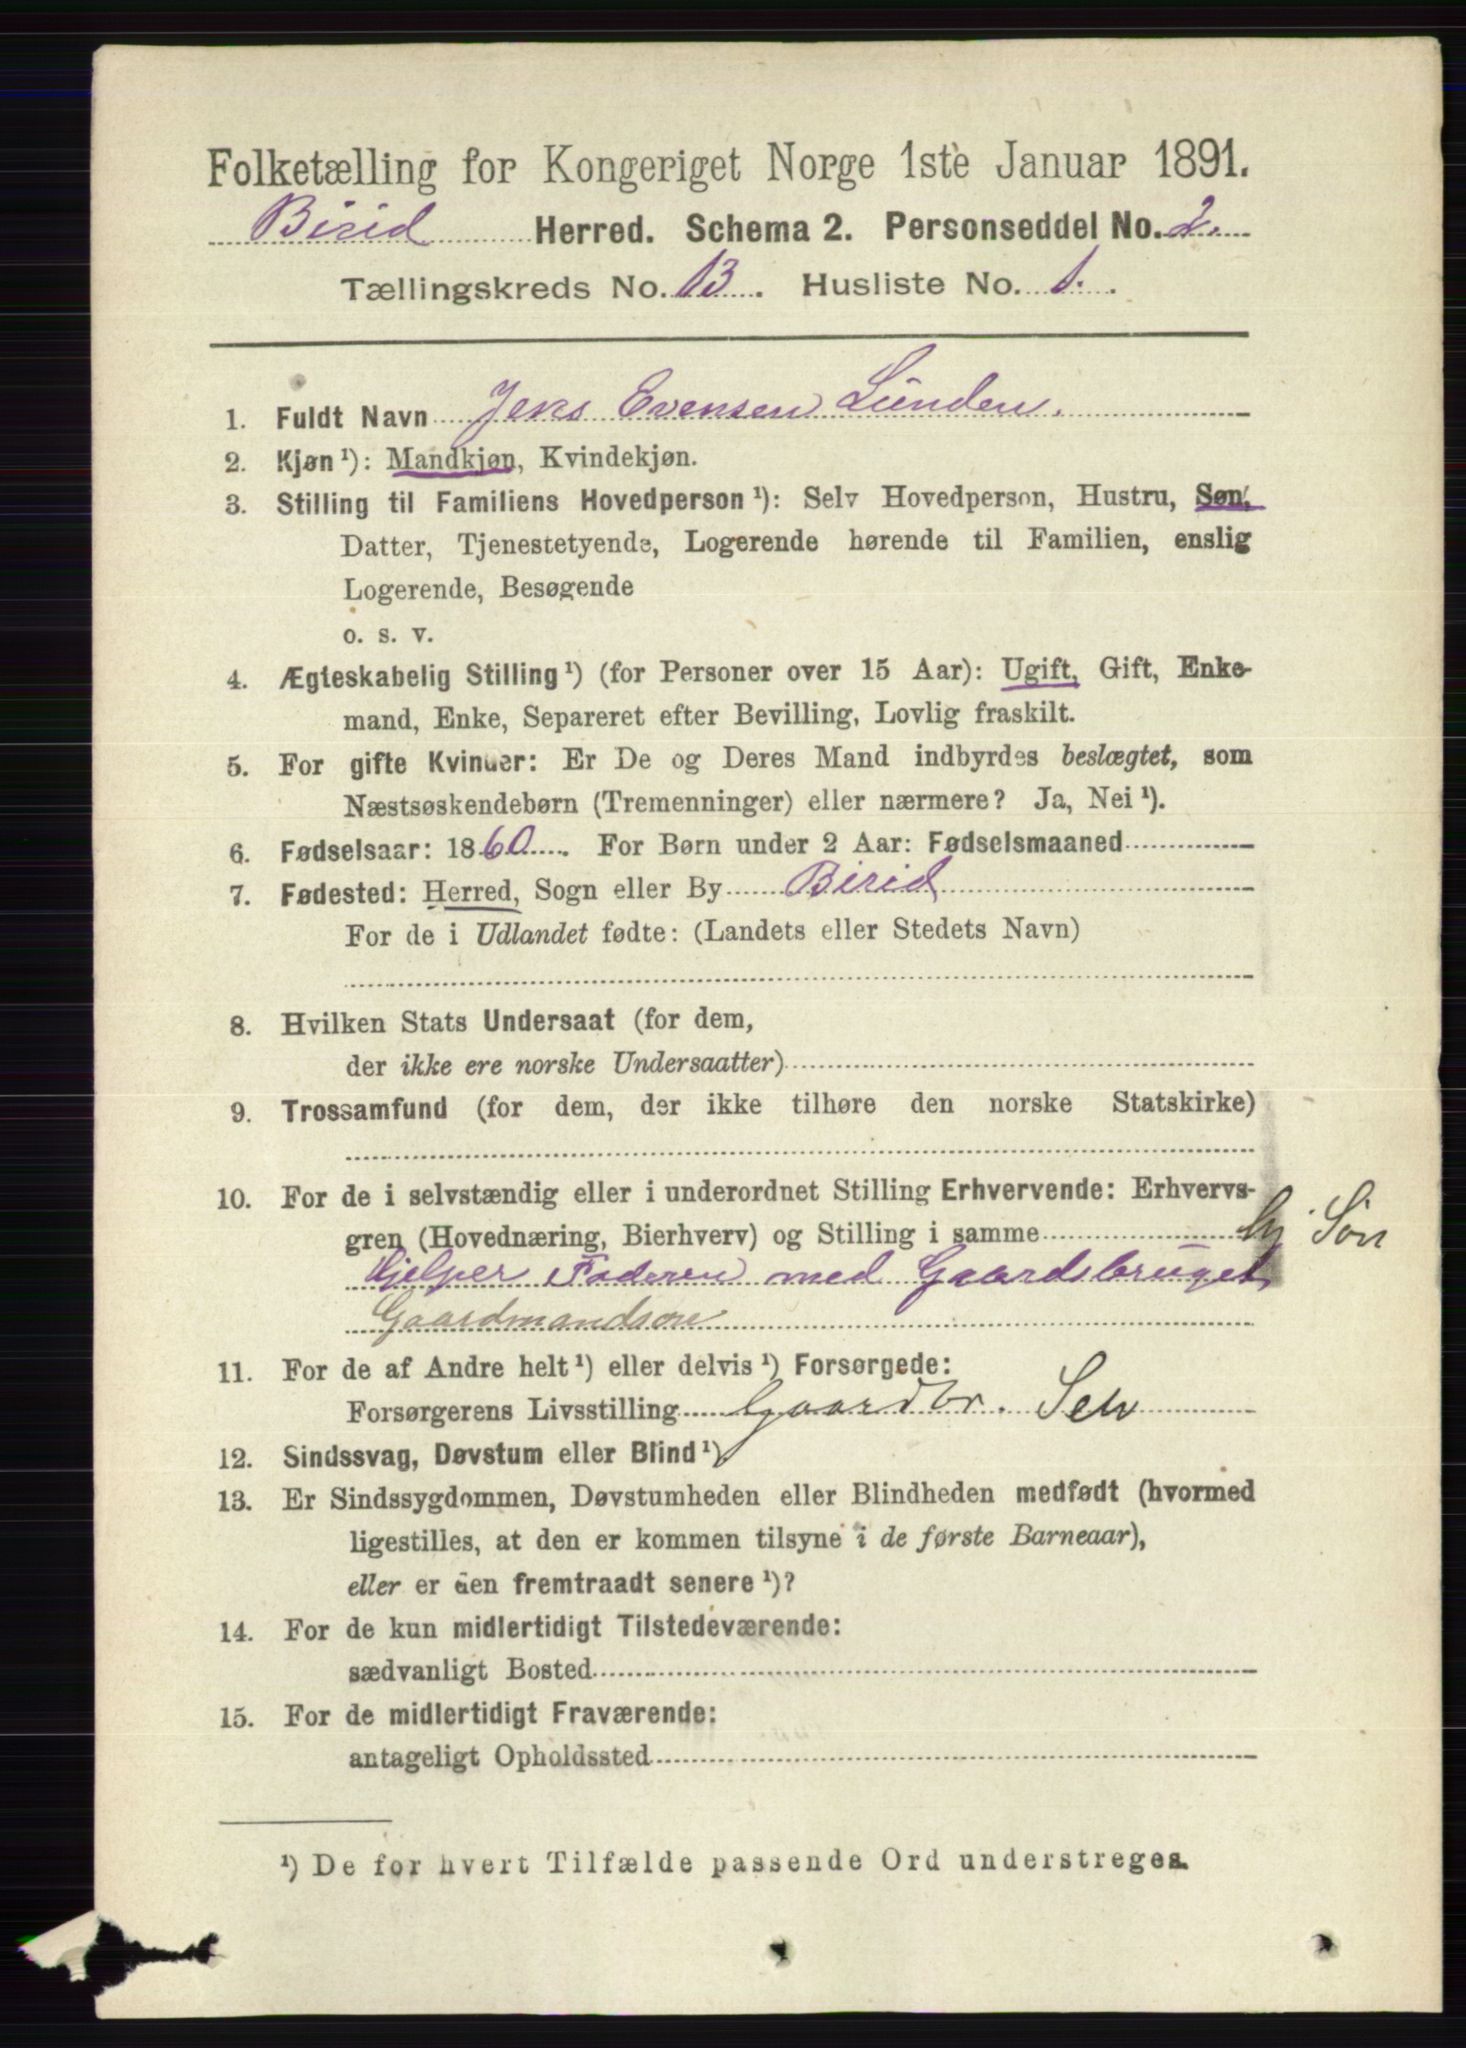 Folketælling for Kongeriget Norge 1ste Januar 1891.
Birid Herred. Schema 2. Personseddel No. 2.
Tællingskreds No. 13. Husliste No. 1.
1. Fuldt Navn Jens Evensen Lunden.
2. Kjøn ¹): Mandkjøn, Kvindekjøn.
3. Stilling til Familiens Hovedperson ¹): Selv Hovedperson, Hustru, Søn,
Datter, Tjenestetyende, Logerende hørende til Familien, enslig
Logerende, Besøgende
o. s. v.
4. Ægteskabelig Stilling ¹) (for Personer over 15 Aar): Ugift, Gift, Enke-
mand, Enke, Separeret efter Bevilling, Lovlig fraskilt.
5. For gifte Kvinder: Er De og Deres Mand indbyrdes beslægtet, som
Næstsøskendebørn (Tremenninger) eller nærmere? Ja, Nei ¹).
6. Fødselsaar: 1860. For Børn under 2 Aar: Fødselsmaaned
7. Fødested: Herred, Sogn eller By Birid
For de i Udlandet fødte: (Landets eller Stedets Navn)
8. Hvilken Stats Undersaat (for dem,
der ikke ere norske Undersaatter)
9. Trossamfund (for dem, der ikke tilhøre den norske Statskirke)
10. For de i selvstændig eller i underordnet Stilling Erhvervende: Erhvervs-
gren (Hovednæring, Bierhverv) og Stilling i samme Hj Søn
Hjelper Faderen med Gaardsbruget
Gaardmandsøn
11. For de af Andre helt ¹) eller delvis ¹) Forsørgede:
Forsørgerens Livsstilling Gaardbr. Selv
12. Sindssvag, Døvstum eller Blind ¹).
13. Er Sindssygdommen, Døvstumheden eller Blindheden medfødt (hvormed
ligestilles, at den er kommen tilsyne i de første Barneaar),
eller er den fremtraadt senere ¹)?
14. For de kun midlertidigt Tilstedeværende:
sædvanligt Bosted
15. For de midlertidigt Fraværende:
antageligt Opholdssted
¹) De for hvert Tilfælde passende Ord understreges.